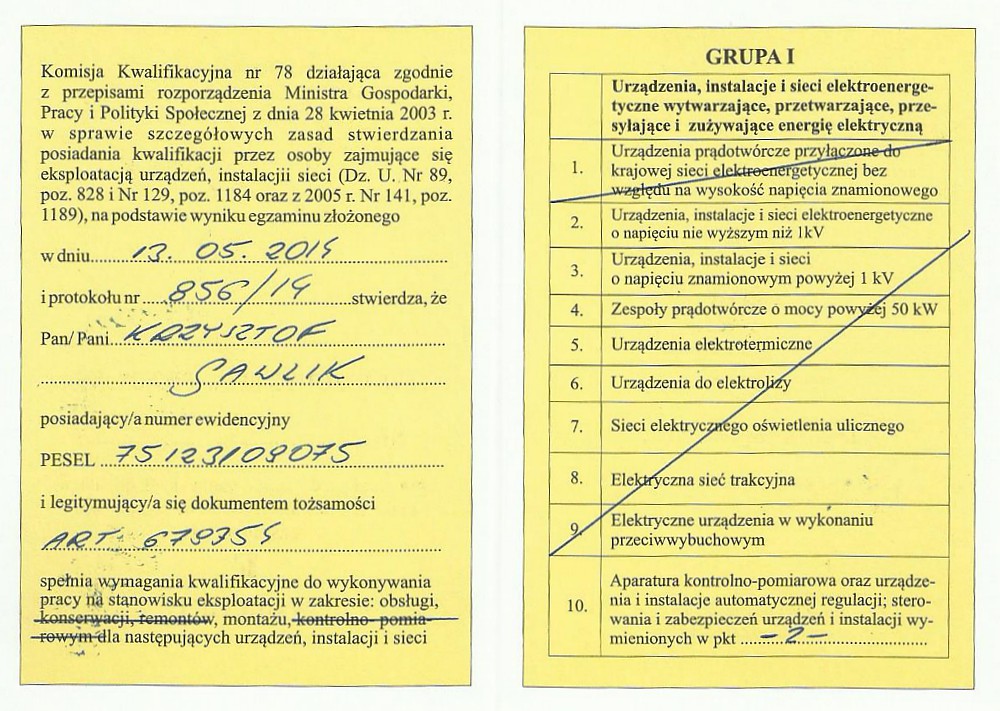 Komisja Kwalifikacyjna nr 78 działająca zgodnie
z przepisami rozporządzenia Ministra Gospodarki,
Pracy i Polityki Społecznej z dnia 28 kwietnia 2003 r.
w sprawie szczegółowych zasad stwierdzania
posiadania kwalifikacji przez osoby zajmujące się
eksploatacją urządzeń, instalacjii sieci (Dz. U. Nr 89,
poz. 828 i Nr 129, poz. 1184 oraz z 2005 r. Nr 141, poz.
1189), na podstawie wyniku egzaminu złożonego
w dniu 13. 05. 2014
i protokołu nr 856/14 stwierdza, że
Pan/ Pani KRZYSZTOF
GAWLIK
posiadający/a numer ewidencyjny
PESEL 75123109075
i legitymujący/a się dokumentem tożsamości
ART 679354
spełnia wymagania kwalifikacyjne do wykonywania
pracy na stanowisku eksploatacji w zakresie: obsługi,
konserwacji, remontów, montażu, kontrolno- pomia-
rowym dla następujących urządzeń, instalacji i sieci
GRUPA I
Urządzenia, instalacje i sieci elektroenerge-
tyczne wytwarzające, przetwarzające, prze-
syłające i zużywające energię elektryczną
1. Urządzenia prądotwórcze przyłączone do
krajowej sieci elektroenergetycznej bez
względu na wysokość napięcia znamionowego
2. Urządzenia, instalacje i sieci elektroenergetyczne
o napięciu nie wyższym niż 1kV
3. Urządzenia, instalacje i sieci
o napięciu znamionowym powyżej 1 kV
4. Zespoły prądotwórcze o mocy powyżej 50 kW
5. Urządzenia elektrotermiczne
6. Urządzenia do elektrolizy
7. Sieci elektrycznego oświetlenia ulicznego
8. Elektryczna sieć trakcyjna
9. Elektryczne urządzenia w wykonaniu
przeciwwybuchowym
10. Aparatura kontrolno-pomiarowa oraz urządze-
nia i instalacje automatycznej regulacji; stero-
wania i zabezpieczeń urządzeń i instalacji wy-
mienionych w pkt - 2 -